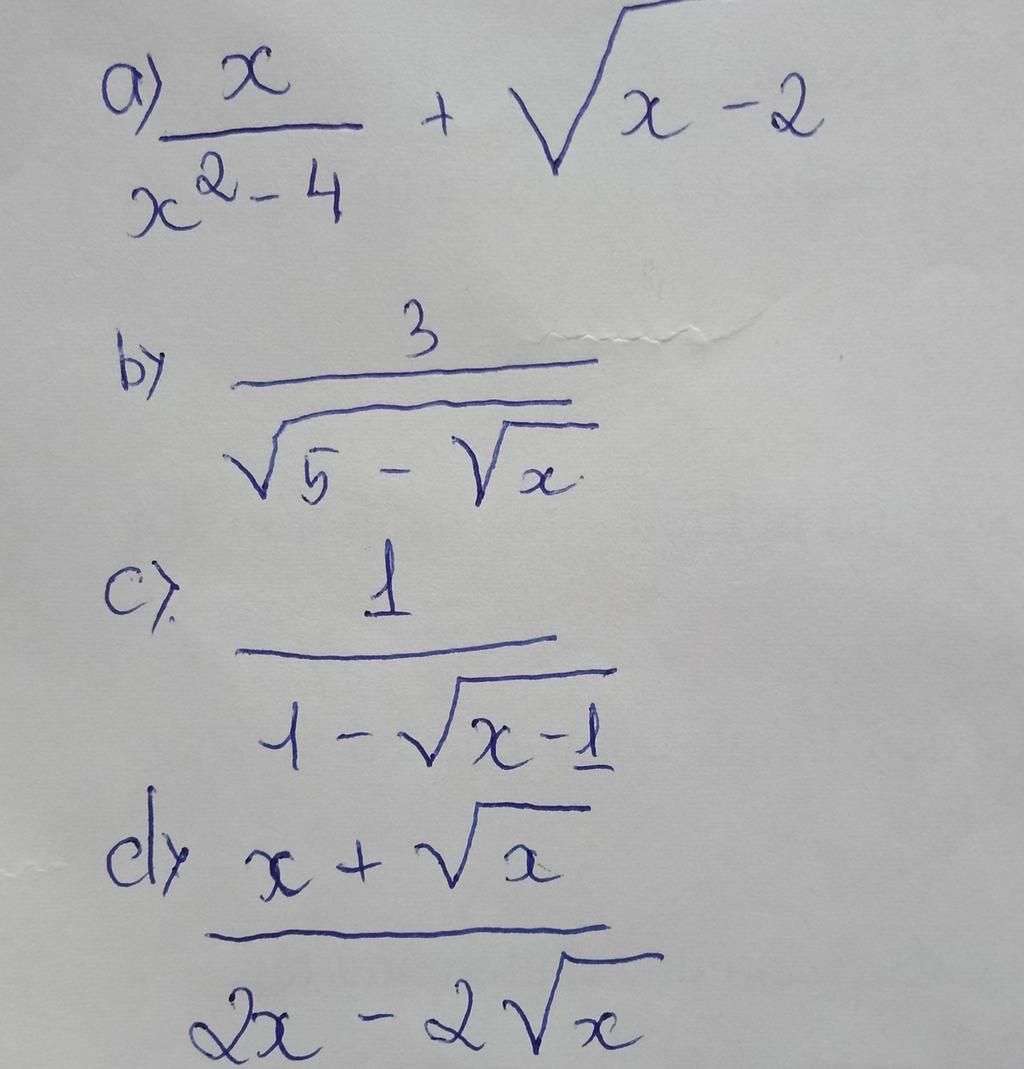 a) x/(x² - 4) + √(x - 2)
b) 3/√(5 - √x)
c) 1/(1 - √(x - 1))
d) (x + √x)/(2x - 2√x)